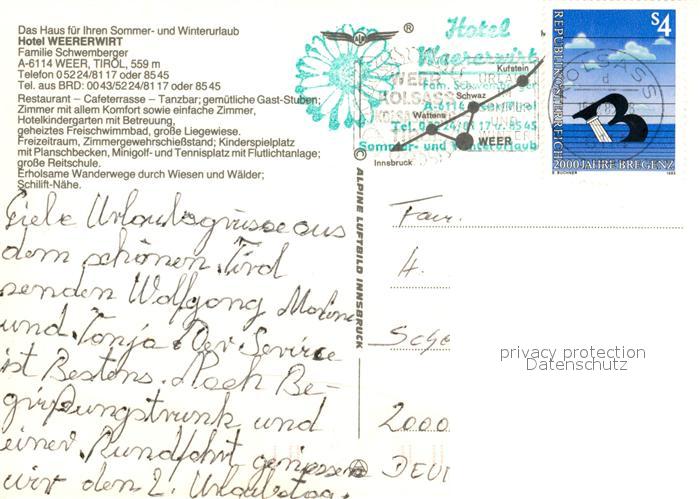 Das Haus für Ihren Sommer- und Winterurlaub
Hotel WEERERWIRT
Familie Schwemberger
A-6114 WEER, TIROL, 559 m
Telefon 05224/8117 oder 8545
Tel. aus BRD: 0043/5224/8117 oder 8545
Restaurant – Cafeterrasse – Tanzbar; gemütliche Gast-Stuben;
Zimmer mit allem Komfort sowie einfache Zimmer,
Hotelkindergarten mit Betreuung,
geheiztes Freischwimmbad, große Liegewiese.
Freizeitraum, Zimmergewehrschießstand; Kinderspielplatz
mit Planschbecken, Minigolf- und Tennisplatz mit Flutlichtanlage;
große Reitschule.
Erholsame Wanderwege durch Wiesen und Wälder;
Schilift-Nähe.
ALP
®
Hotel
Weererwirt
Fam. Schwemberger
A-6114
Tel. 05224/81 17 u. 85 45
Sommer- und Winterurlaub
Kufstein
Schwaz
Wattens
WEER
Innsbruck
WEER
KOLSASS
URLAUB
UND
KOLSASS
S4
REPUBLIK ÖSTERREICH
2000 JAHRE BREGENZ
E. BUCHNER
1985
ALPINE LUFTBILD INNSBRUCK
Liebe Urlaubsgrüsse aus
dem schönen Tirol
senden Wolfgang
und Tonja. Der Service
ist Bestens. Nach Be-
grüßungstrunk und
einer Rundfahrt geniessen
wir den 2. Urlaubstag.
Fam.
H.
2000
DEU
privacy protection
Datenschutz